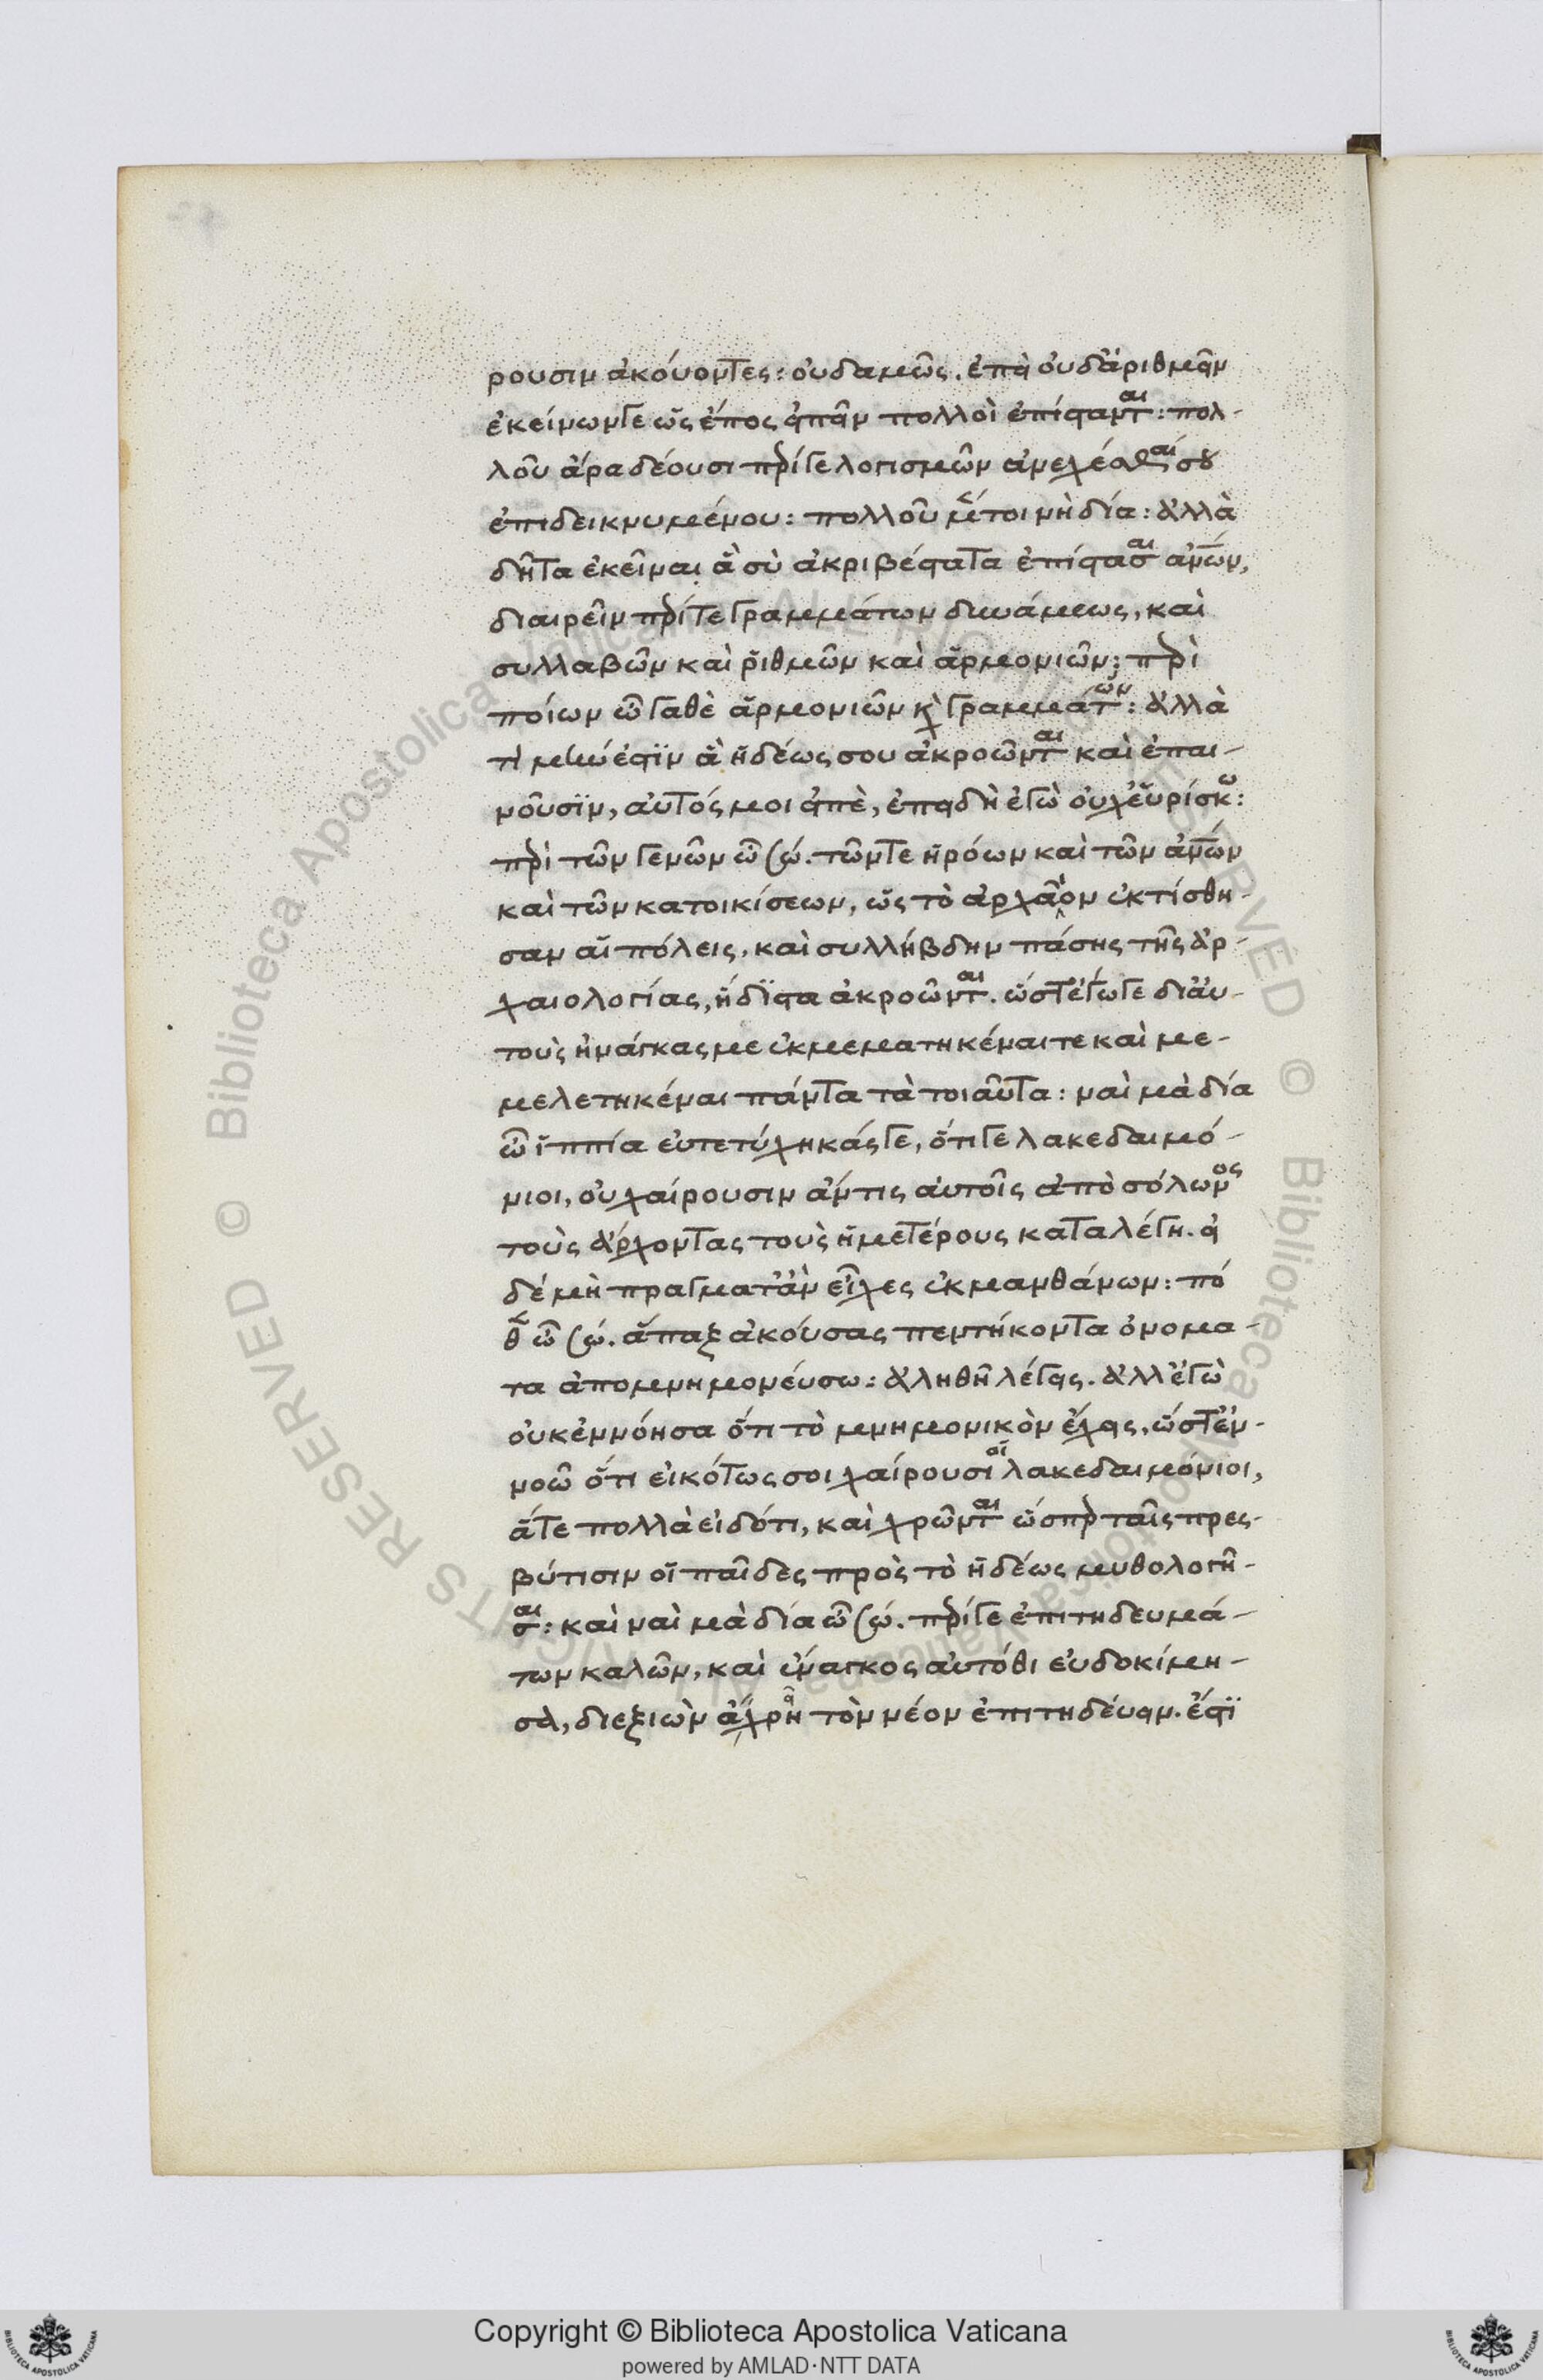 ρουσιν ἀκούοντες: οὐδαμῶς. ἐπεὶ οὐδ' ἀριθμεῖν
ἐκείνων γε ὡς ἔπος εἰπεῖν πολλοὶ ἐπίστανται: πολ-
λοῦ ἄρα δέουσι περί γε λογισμῶν ἀνέχεσθαί σου
ἐπιδεικνυμένου: πολλοῦ μέντοι νὴ δία: ἀλλὰ
δῆτα ἐκεῖνα ἃ σὺ ἀκριβέστατα ἐπίστασαι ἀνθρώπων,
διαιρεῖν περί τε γραμμάτων δυνάμεως, καὶ
συλλαβῶν καὶ ῥιθμῶν καὶ ἁρμονιῶν: περὶ
ποίων ὦ γαθὲ ἁρμονιῶν καὶ γραμμάτων: ἀλλὰ
τί μὴν ἐστὶν ἃ ἡδέως σου ἀκροῶνται καὶ ἐπαι-
νοῦσιν, αὐτός μοι εἰπὲ, ἐπειδὴ ἐγὼ οὐχ εὑρίσκω:
περὶ τῶν γενῶν ὦ σώ. τῶν τε ἡρώων καὶ τῶν ἀνθρώπων
καὶ τῶν κατοικίσεων, ὡς τὸ ἀρχαῖον ἐκτίσθη-
σαν αἱ πόλεις, καὶ συλλήβδην πάσης τῆς ἀρ-
χαιολογίας, ἥδιστα ἀκροῶνται. ὥστ' ἔγωγε δι' αὐ-
τοὺς ἠνάγκασμε ἐκμεματηκέναι τε καὶ με-
μελετηκέναι πάντα τὰ τοιαῦτα: ναὶ μὰ δία
ὦ ἱππία εὐτετύχηκάς γε, ὅτι γε λακεδαιμό-
νιοι, οὐ χαίρουσιν ἄν τις αὐτοῖς ἀπὸ σόλωνος
τοὺς ἄρχοντας τοὺς ἡμετέρους καταλέγῃ. εἰ
δὲ μὴ πράγματ' ἂν εἶχες ἐκμανθάνων: πό
θεν ὦ σώ. ἅπαξ ἀκούσας πεντήκοντα ὀνόμα-
τα ἀπομνημονεύσω: ἀληθῆ λέγεις. ἀλλ' ἐγὼ
οὐκ ἐννόησα ὅτι τὸ μνημονικὸν ἔχεις, ὥστ' ἐν-
νοῶ ὅτι εἰκότως σοι χαίρουσι οἱ λακεδαιμόνιοι,
ἅτε πολλὰ εἰδότι, καὶ χρῶνται ὥσπερ ταῖς πρες-
βύτισιν οἱ παῖδες πρὸς τὸ ἡδέως μυθολογῆ-
σαι: καὶ ναὶ μὰ δία ὦ σώ. περί γε ἐπιτηδευμά-
των καλῶν, καὶ ἔναγκος αὐτόθι εὐδοκίμη-
σα, διεξιὼν ἃ χρὴ τὸν νέον ἐπιτηδεύειν. ἔστι
Copyright © Biblioteca Apostolica Vaticana
powered by AMLAD·NTT DATA